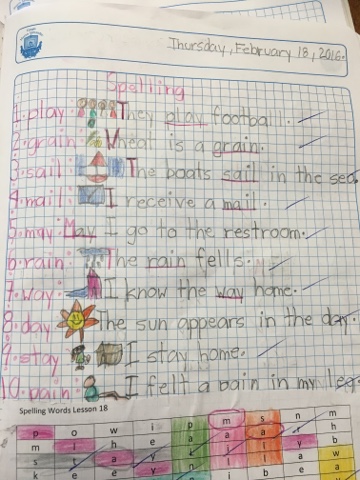 Thursday, February 18, 2016.
Spelling
1. play: They play football.
2. grain: Wheat is a grain.
3. sail: The boats sail in the sea
4. mail: I receive a mail.
5. may: May I go to the restroom.
6. rain: The rain fells.
7. way: I know the way home.
8. day: The sun appears in the day.
9. stay: I stay home.
10. pain: I felt a pain in my leg
Spelling Words Lesson 18
p o w i p m s n m